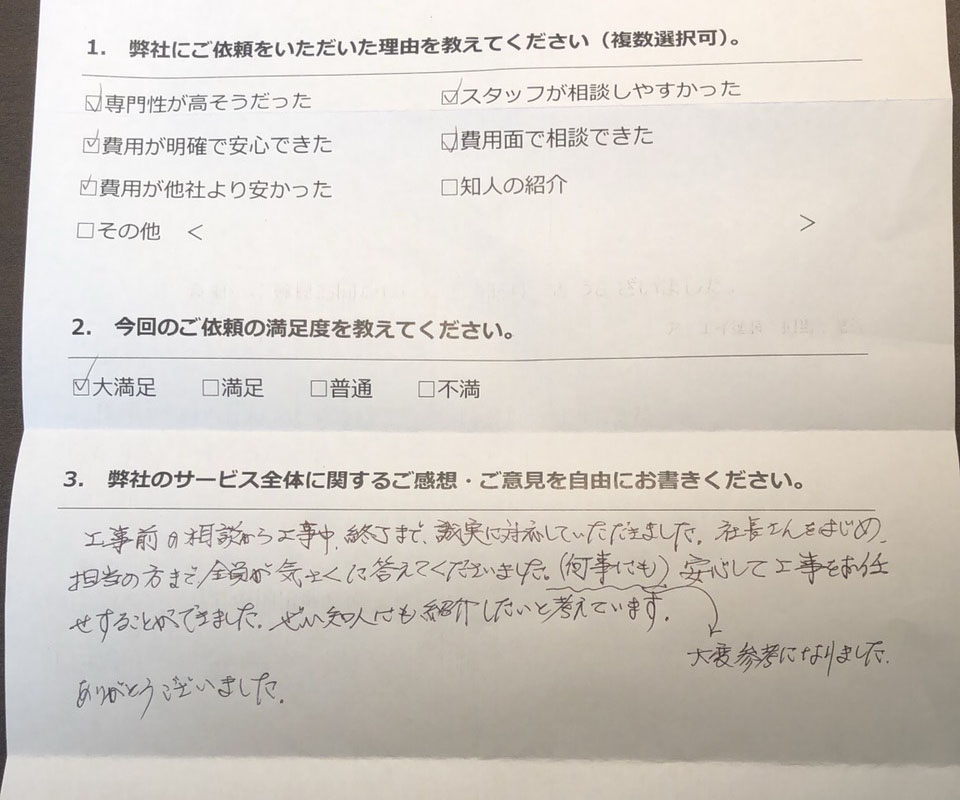 1. 弊社にご依頼をいただいた理由を教えてください（複数選択可）。
☑専門性が高そうだった ☑スタッフが相談しやすかった
☑費用が明確で安心できた ☑費用面で相談できた
☑費用が他社より安かった □知人の紹介
□その他 < >
2. 今回のご依頼の満足度を教えてください。
☑大満足 □満足 □普通 □不満
3. 弊社のサービス全体に関するご感想・ご意見を自由にお書きください。
工事前の相談から工事中、終了まで、誠実に対応していただきました。社長さんをはじめ、
担当の方まで全員が気さくに答えてくださいました。(何事にも) 安心して工事をお任
せすることができました。ぜひ知人にも紹介したいと考えています。
大変参考になりました。
ありがとうございました。